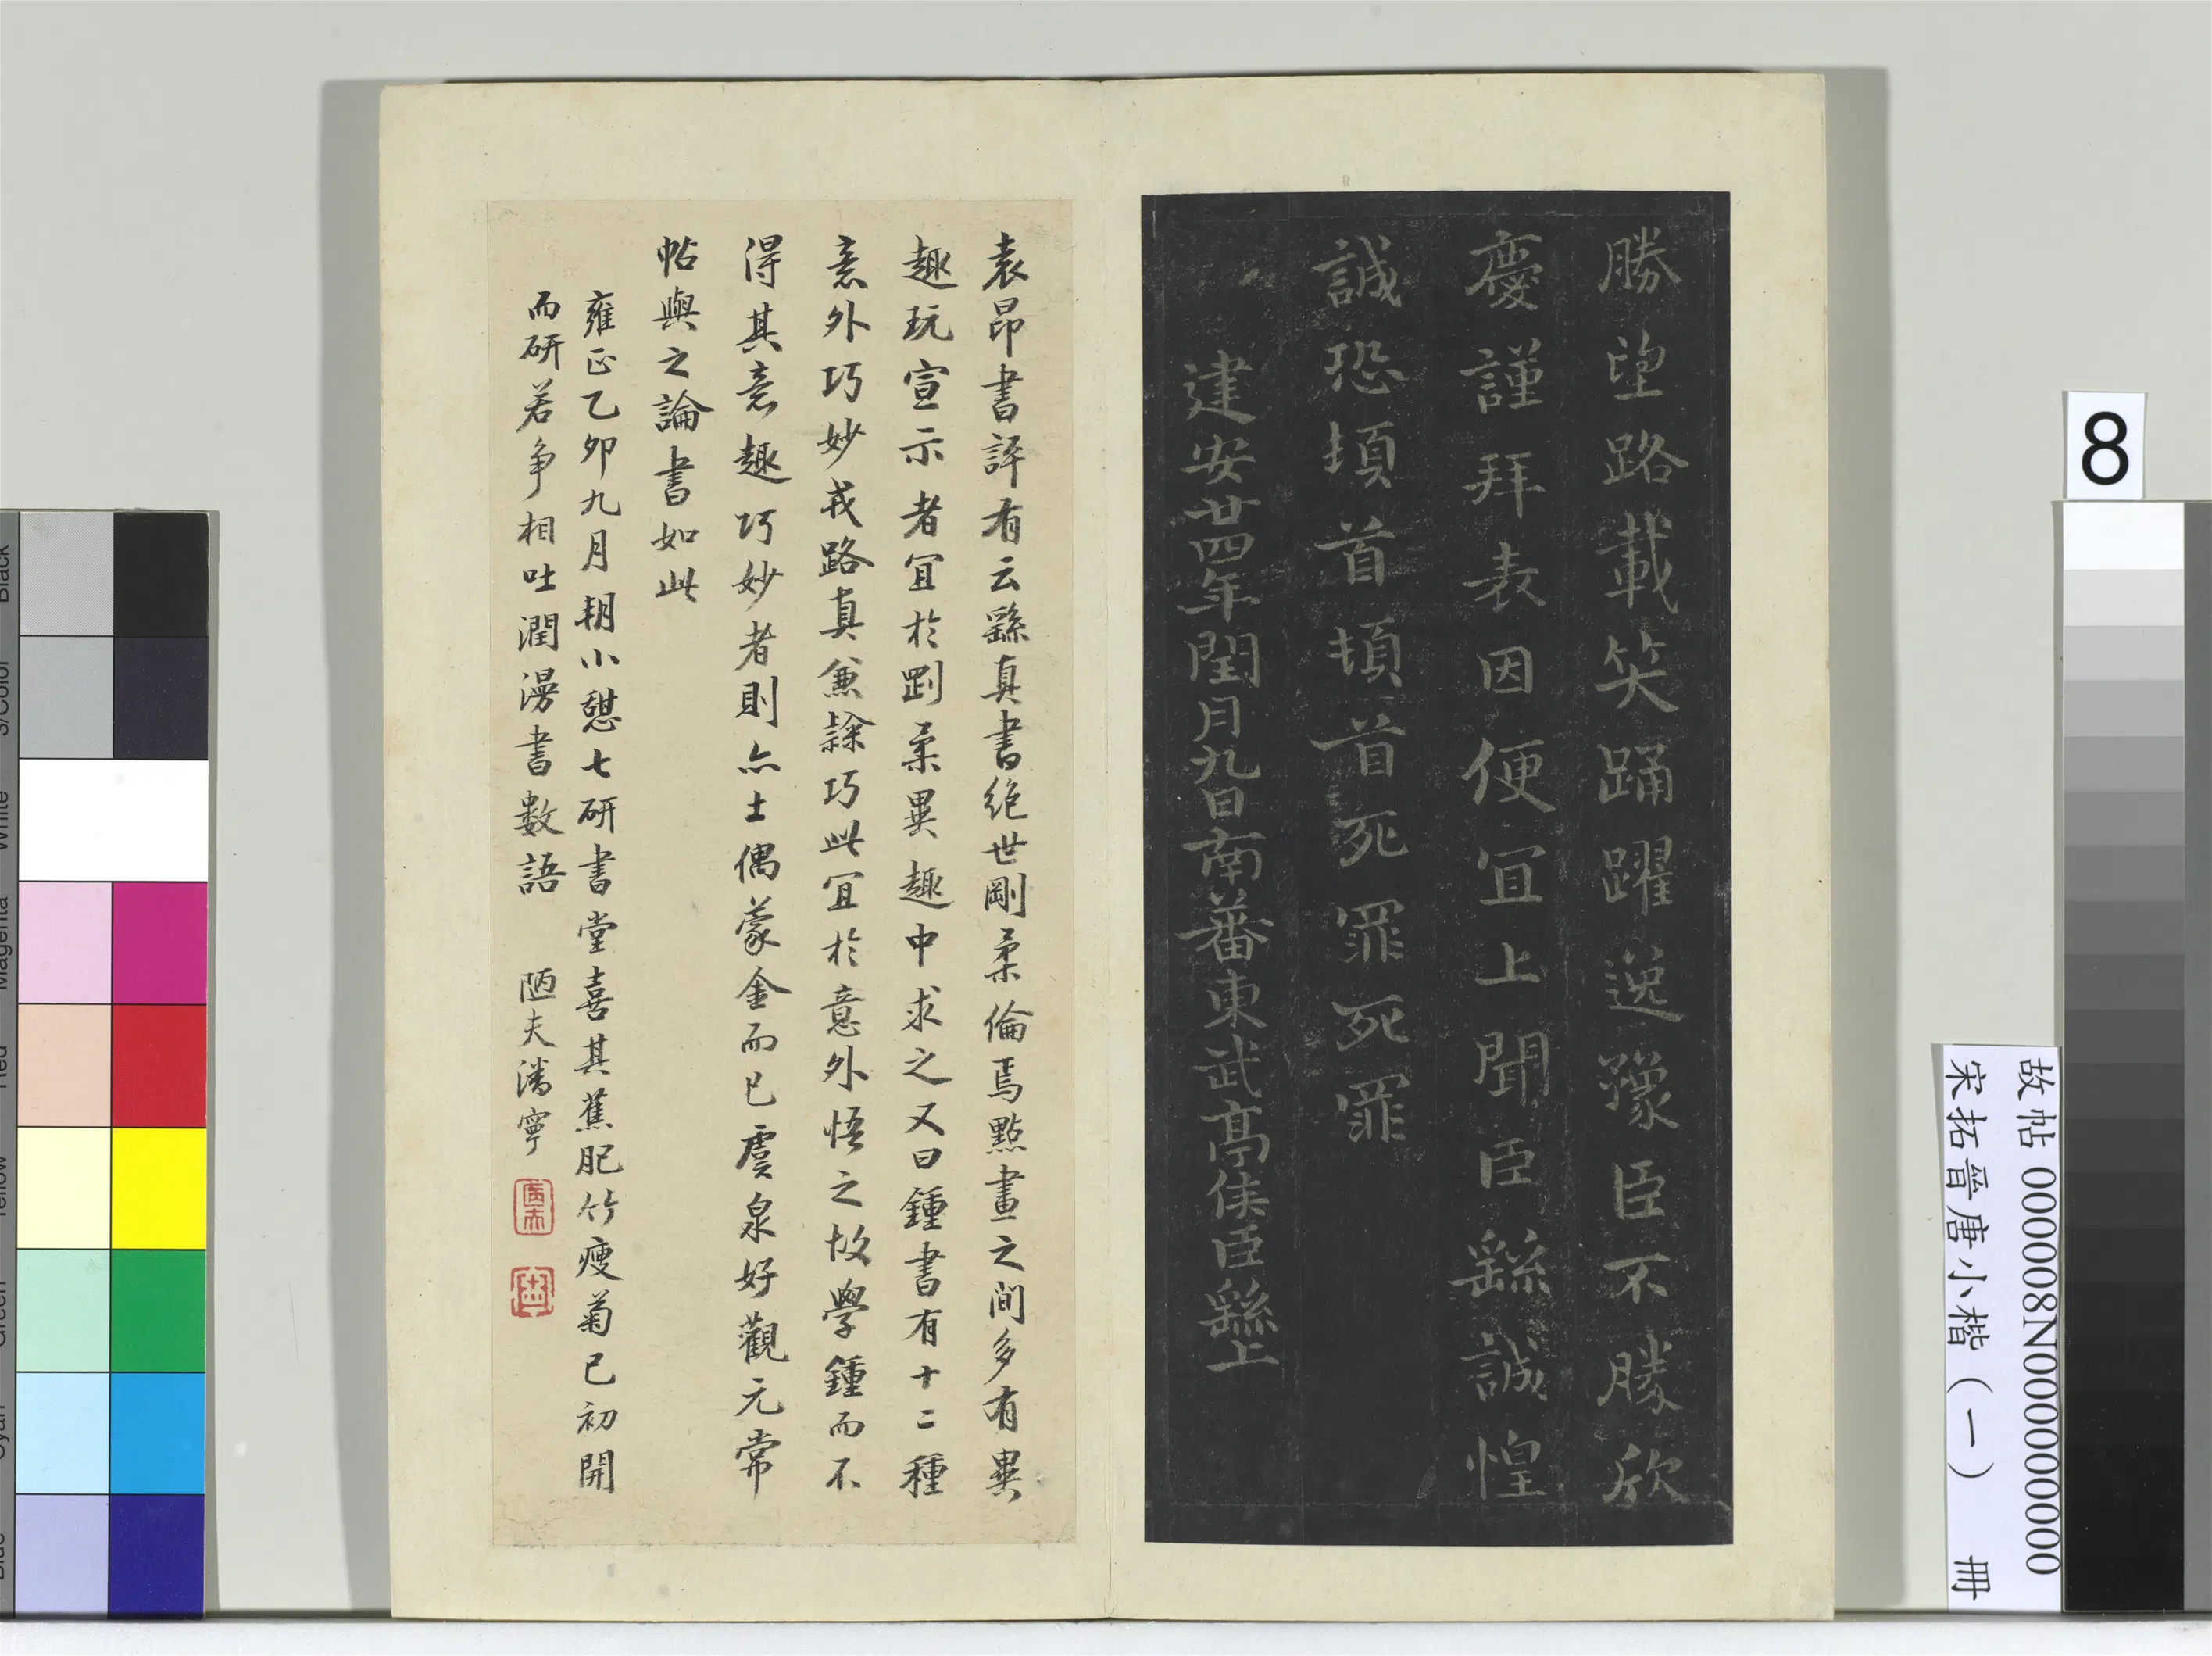 勝望路載笑踊躍逸豫臣不勝欣
慶謹拜表因便宜上聞臣繇誠惶
誠恐頓首頓首死罪死罪
建安廿四年閏月九日南蕃東武亭侯臣繇上
袁昂書評有云繇真書绝世剛柔俻焉點畫之间多有異
趣玩宣示者宜於剛柔異趣中求之又曰鍾書有十二種
意外巧妙我路真兼隸巧此宜於意外悟之故學鍾而不
得其意趣巧妙者則亦土偶蒙金而已虞泉好觀元常
帖與之論書如此
雍正乙卯九月朝小憩七研書堂喜其蕉肥竹瘦菊已初開
而研若争相吐潤漫書數語 陋夫潘寧
8
故帖 000008N000000000
宋拓晉唐小楷（一） 冊
Black
3/Color
White
Magenta
Red
Yellow
Green
Cyan
Blue